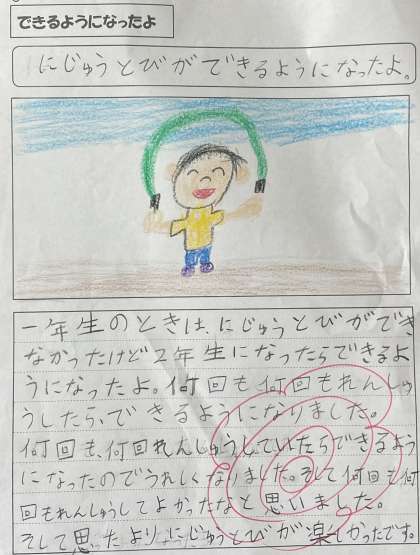 できるようになったよ
にじゅうとびができるようになったよ。
一年生のときは、にじゅうとびができ
なかったけど2年生になったらできるよ
うになったよ。何回も何回もれんしゅ
うしたら、できるようになりました。
何回も、何回れんしゅうしていたらできるよう
になったのでうれしくなりました。そして何回も何
回もれんしゅうしてよかったなと思いました。
そして思ったよりよにじゅうとびが楽しかったです。